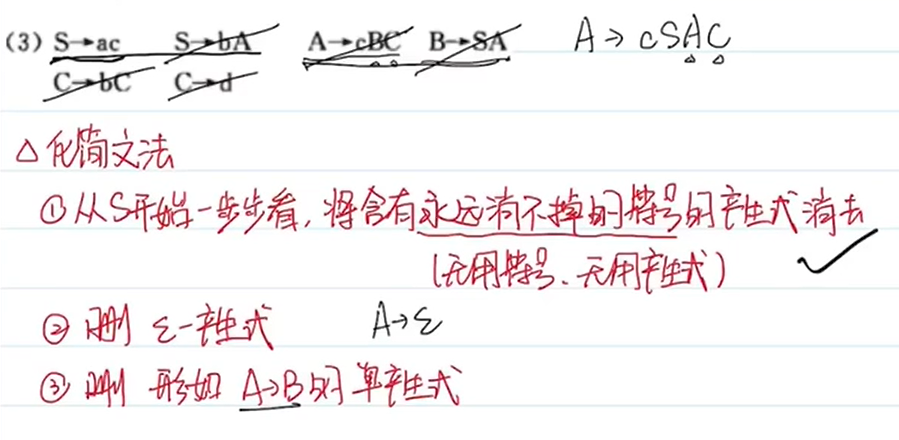 (3) S→ac S→bA A→cBC B→SA A→cSAC
C→bC C→d
△化简文法
①从S开始一步步看,将含有永远消不掉的符号的产生式消去
(无用符号、无用产生式)
②删 ε-产生式 A→ε
③删 形如 A→B的单产生式